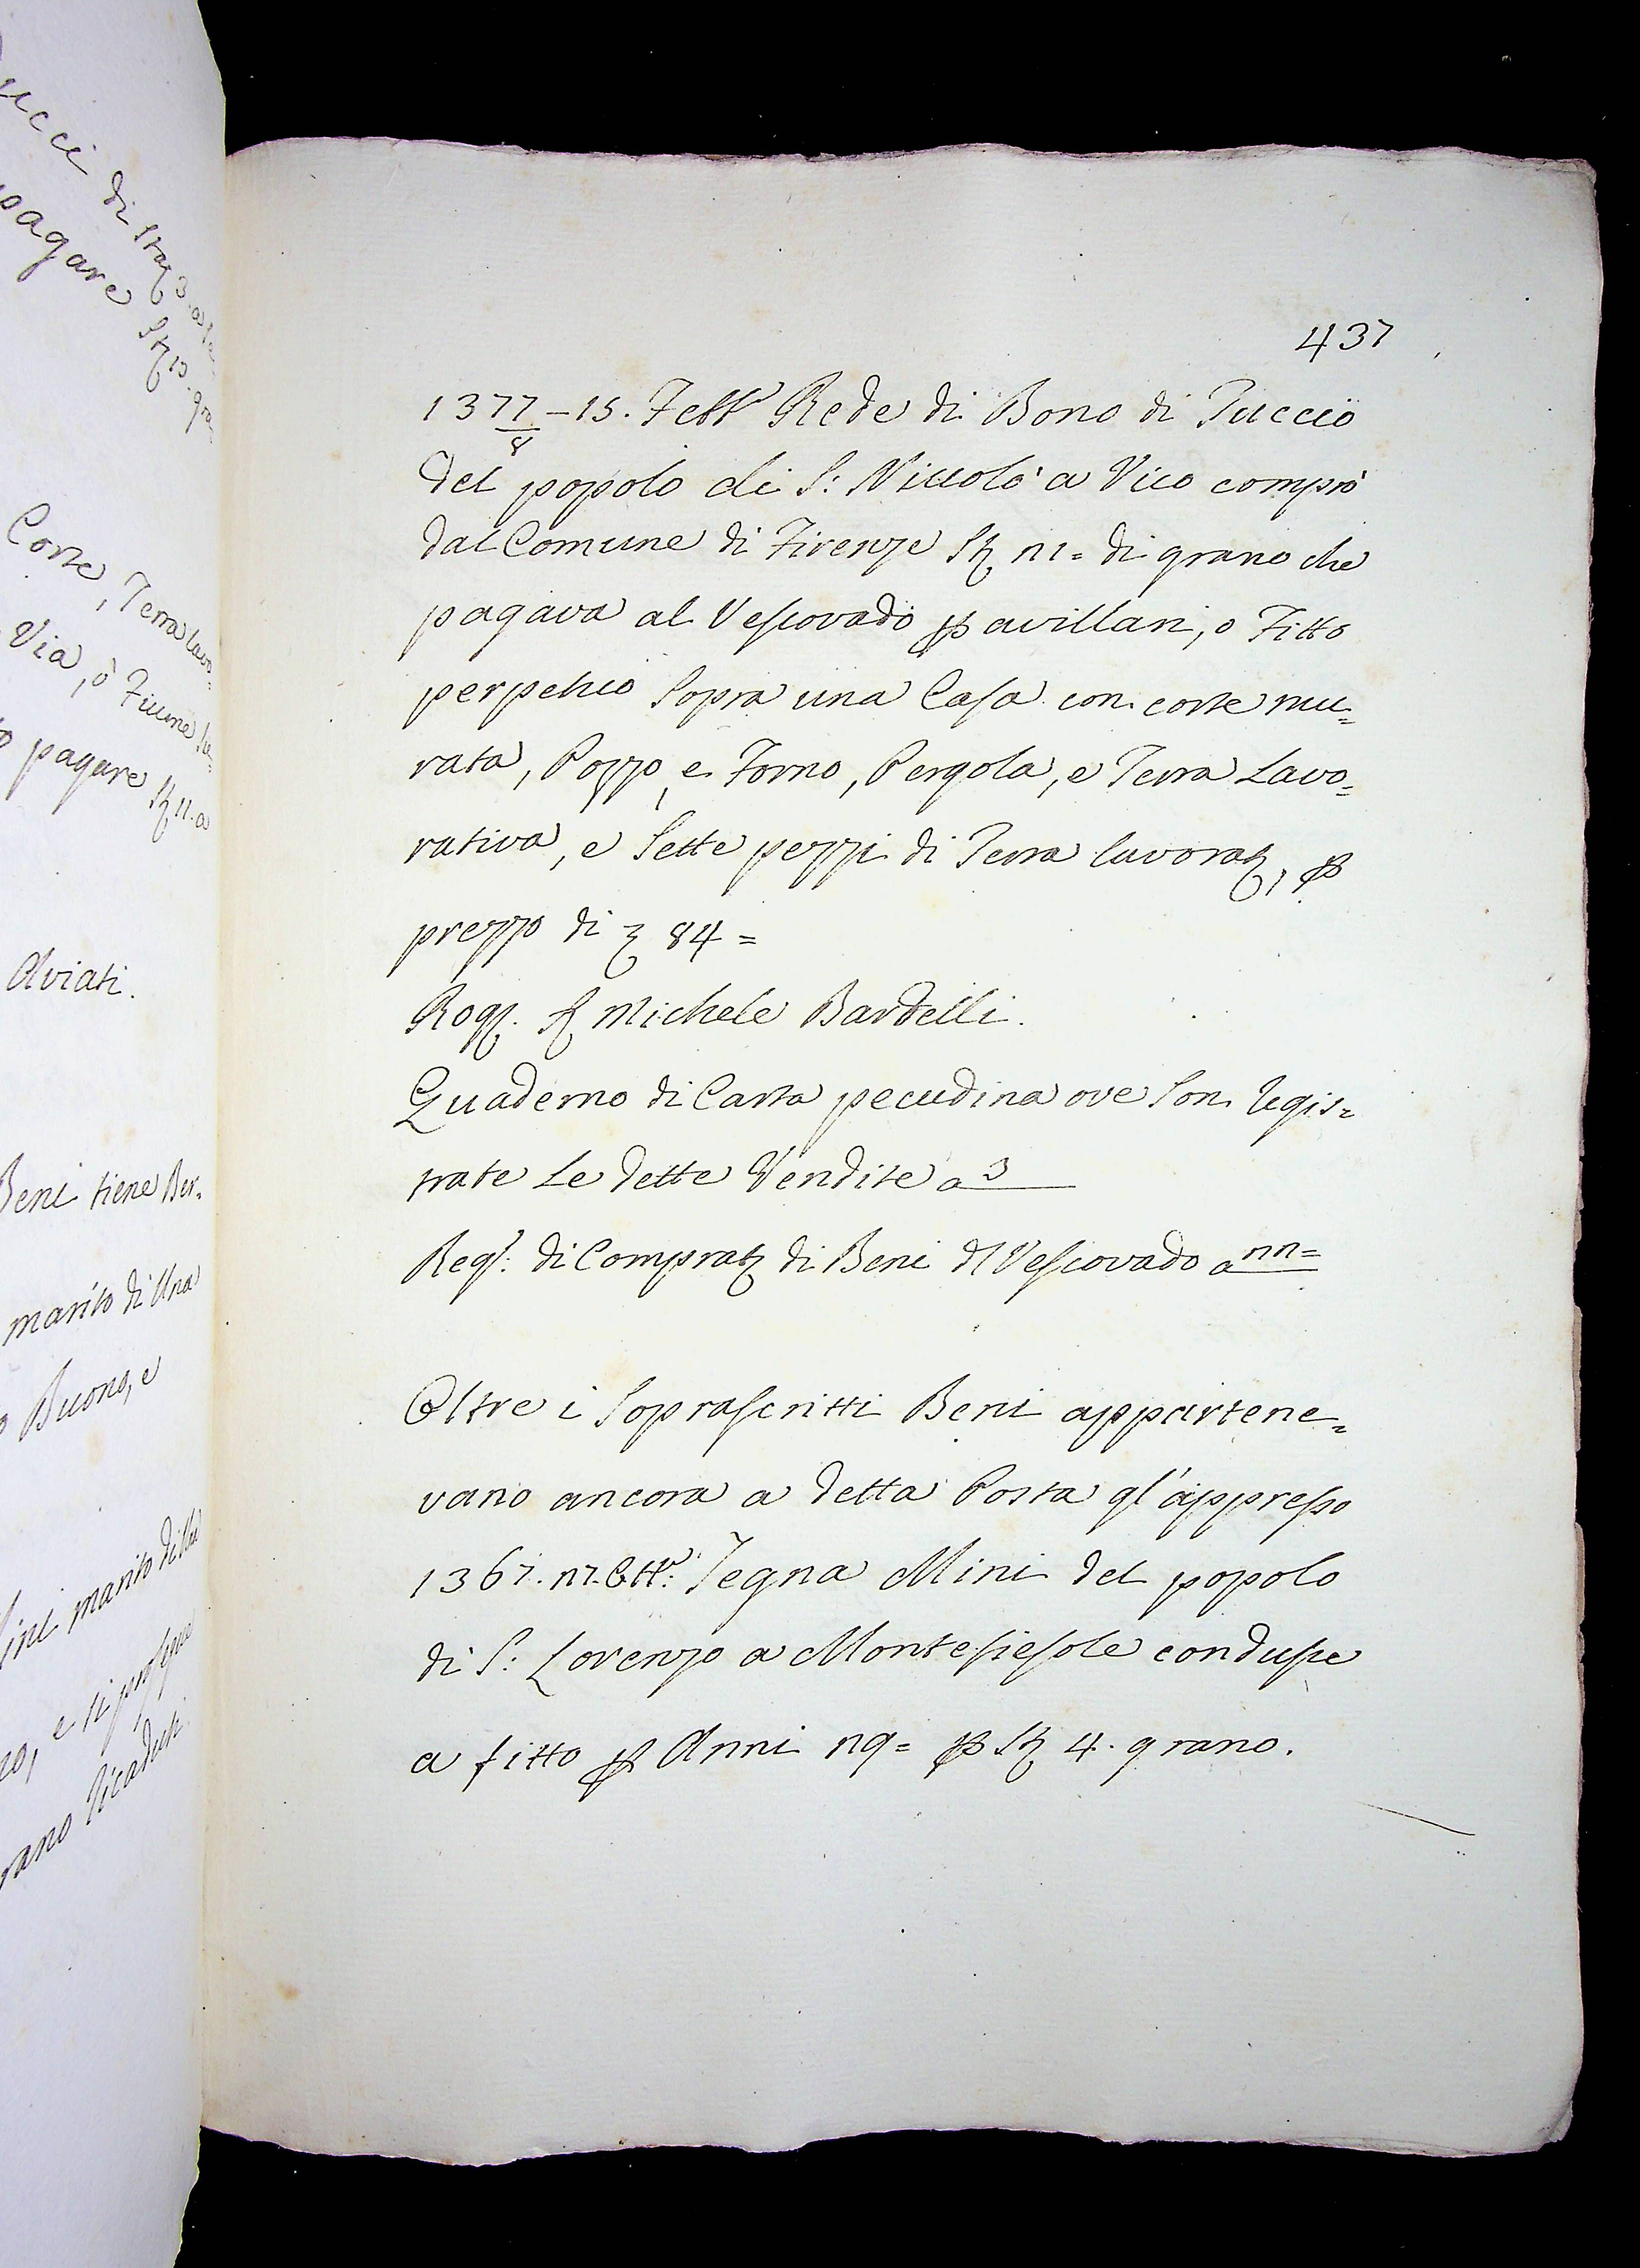 437
1377/8 - 15. Febb.º Rede di Bono di Tuccio
del popolo di S: Niccolò a Vico comprò
dal Comune di Firenze St 21= di grano che
pagava al Vescovado p avillari, o Fitto
perpetuo Sopra una Casa con corte mu=
rata, Pozzo, e Forno, Pergola, e Terra Lavo=
rativa, e Sette pezzi di Terra lavorat, p
prezzo di 84=
Rog. S Michele Bardelli.
Quaderno di Carta pecudina ove Son regis=
trate Le dette Vendite a 3
Reg: di Comprat di Beni dl Vescovado a 22=
Oltre i Soprascritti Beni appartene=
vano ancora a detta Posta gl'appresso
1367. 27. Ott.e: Tegna Mini del popolo
di S: Lorenzo a Montefiesole condusse
a fitto p Anni 29= p St 4. grano.
ucci di Stai 3. a
pagare St 13. gra
Corte, Terra lavo=
Via, ò Fiume
pagare St 11. a
Alviati.
Beni tiene Ber=
marito di Una
Buono, e
marito
e si
rano